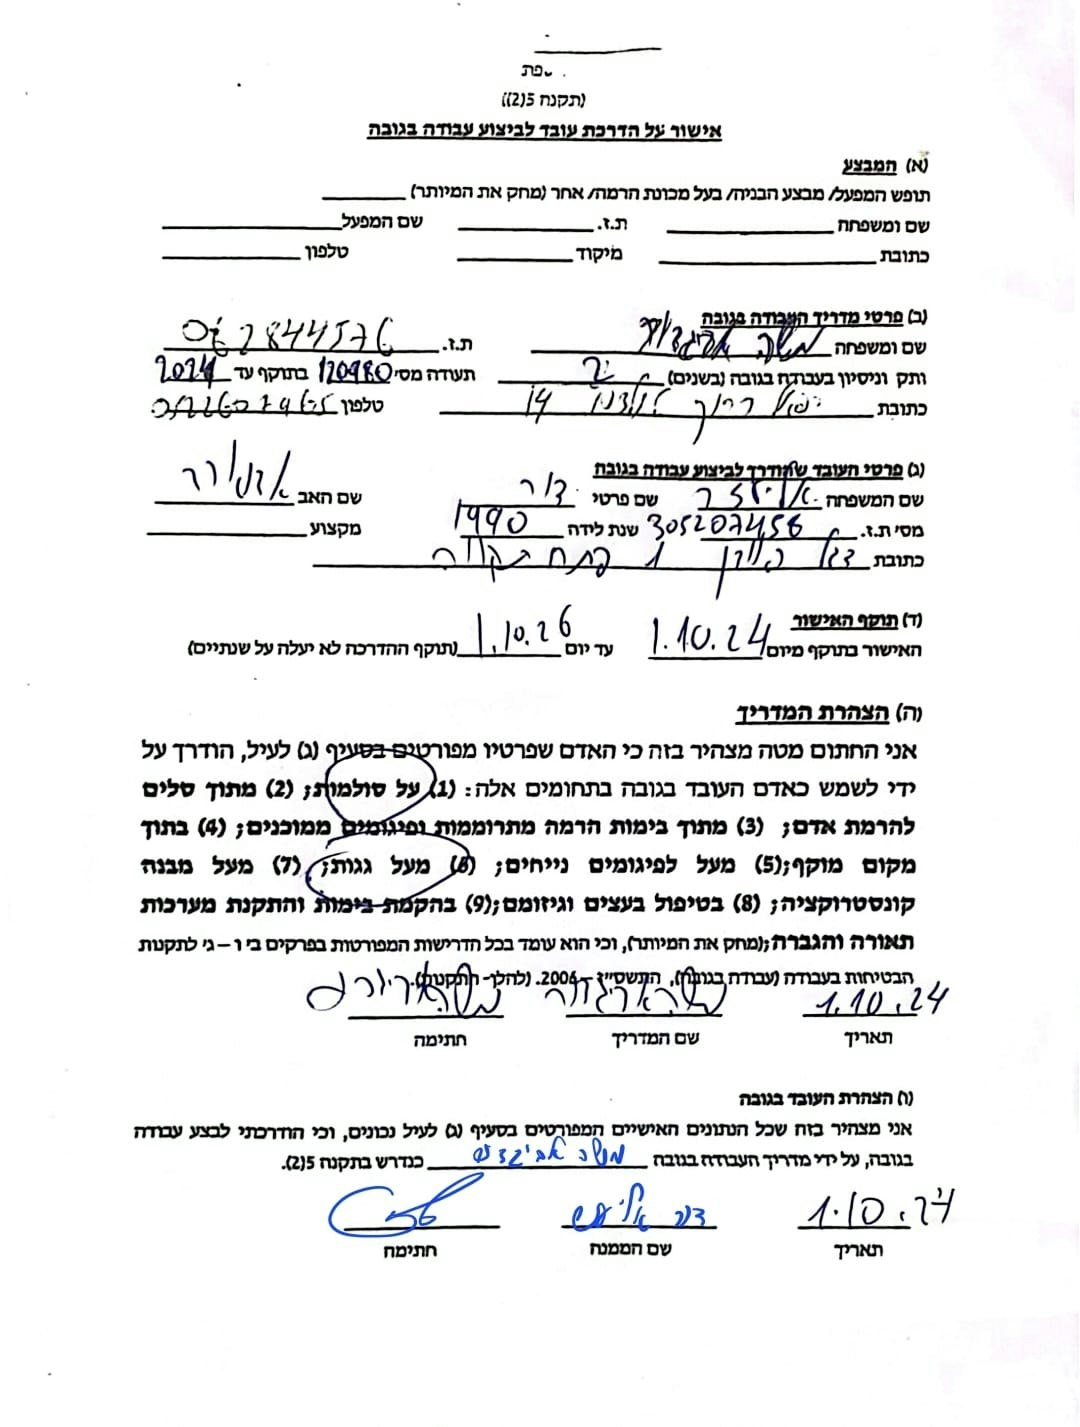 (תקנה 5(2))
אישור על הדרכת עובד לביצוע עבודה בגובה
(א) המבצע
תופש המפעל/ מבצע הבניה/ בעל מכונת הרמה/ אחר (מחק את המיותר)
שם ומשפחה ת.ז. שם המפעל
כתובת מיקוד טלפון
(ב) פרטי מדריך העבודה בגובה
שם ומשפחה משה ת.ז.
ותק וניסיון בעבודה בגובה (בשנים) תעודה מס' 120980 בתוקף עד 2024
כתובת 14 טלפון
(ג) פרטי העובד שהודרך לביצוע עבודה בגובה
שם המשפחה שם פרטי דור שם האב
מס' ת.ז. 305207456 שנת לידה 1990 מקצוע
כתובת 1 פתח תקווה
(ד) תוקף האישור
האישור בתוקף מיום 1.10.24 עד יום 1.10.26 (תוקף ההדרכה לא יעלה על שנתיים)
(ה) הצהרת המדריך
אני החתום מטה מצהיר בזה כי האדם שפרטיו מפורטים בסעיף (ג) לעיל, הודרך על
ידי לשמש כאדם העובד בגובה בתחומים אלה: (1) על סולמות; (2) מתוך סלים
להרמת אדם; (3) מתוך בימות הרמה מתרוממות ופיגומים ממוכנים; (4) בתוך
מקום מוקף;(5) מעל לפיגומים נייחים; (6) מעל גגות; (7) מעל מבנה
קונסטרוקציה; (8) בטיפול בעצים וגיזומם;(9) בהקמת בימות והתקנת מערכות
תאורה והגברה;(מחק את המיותר), וכי הוא עומד בכל הדרישות המפורטות בפרקים ב' ו – ג' לתקנות
הבטיחות בעבודה (עבודה בגובה), התשס"ז – 2006. (להלן- התקנות).
1.10.24
תאריך שם המדריך חתימה
(ו) הצהרת העובד בגובה
אני מצהיר בזה שכל הנתונים האישיים המפורטים בסעיף (ג) לעיל נכונים, וכי הודרכתי לבצע עבודה
בגובה, על ידי מדריך העבודה בגובה משה כנדרש בתקנה 5(2).
1.10.24 דור
תאריך שם הממנה חתימה